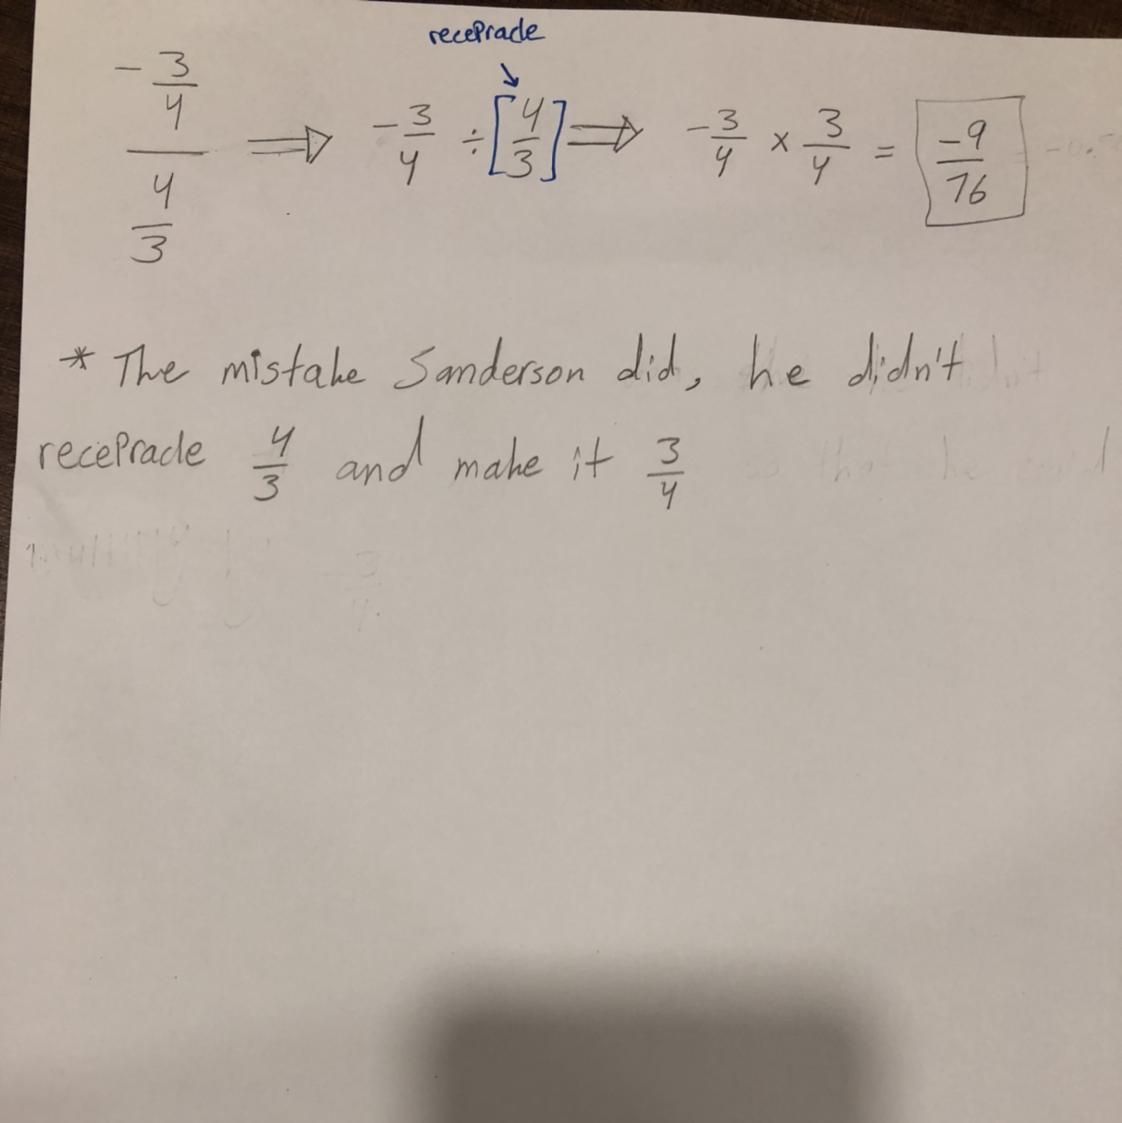 recePracle
-3/4 / 4/3 ⇒ -3/4 ÷ [4/3] ⇒ -3/4 × 3/4 = -9/16
* The mistake Sanderson did, he didn't
recePracle 4/3 and make it 3/4